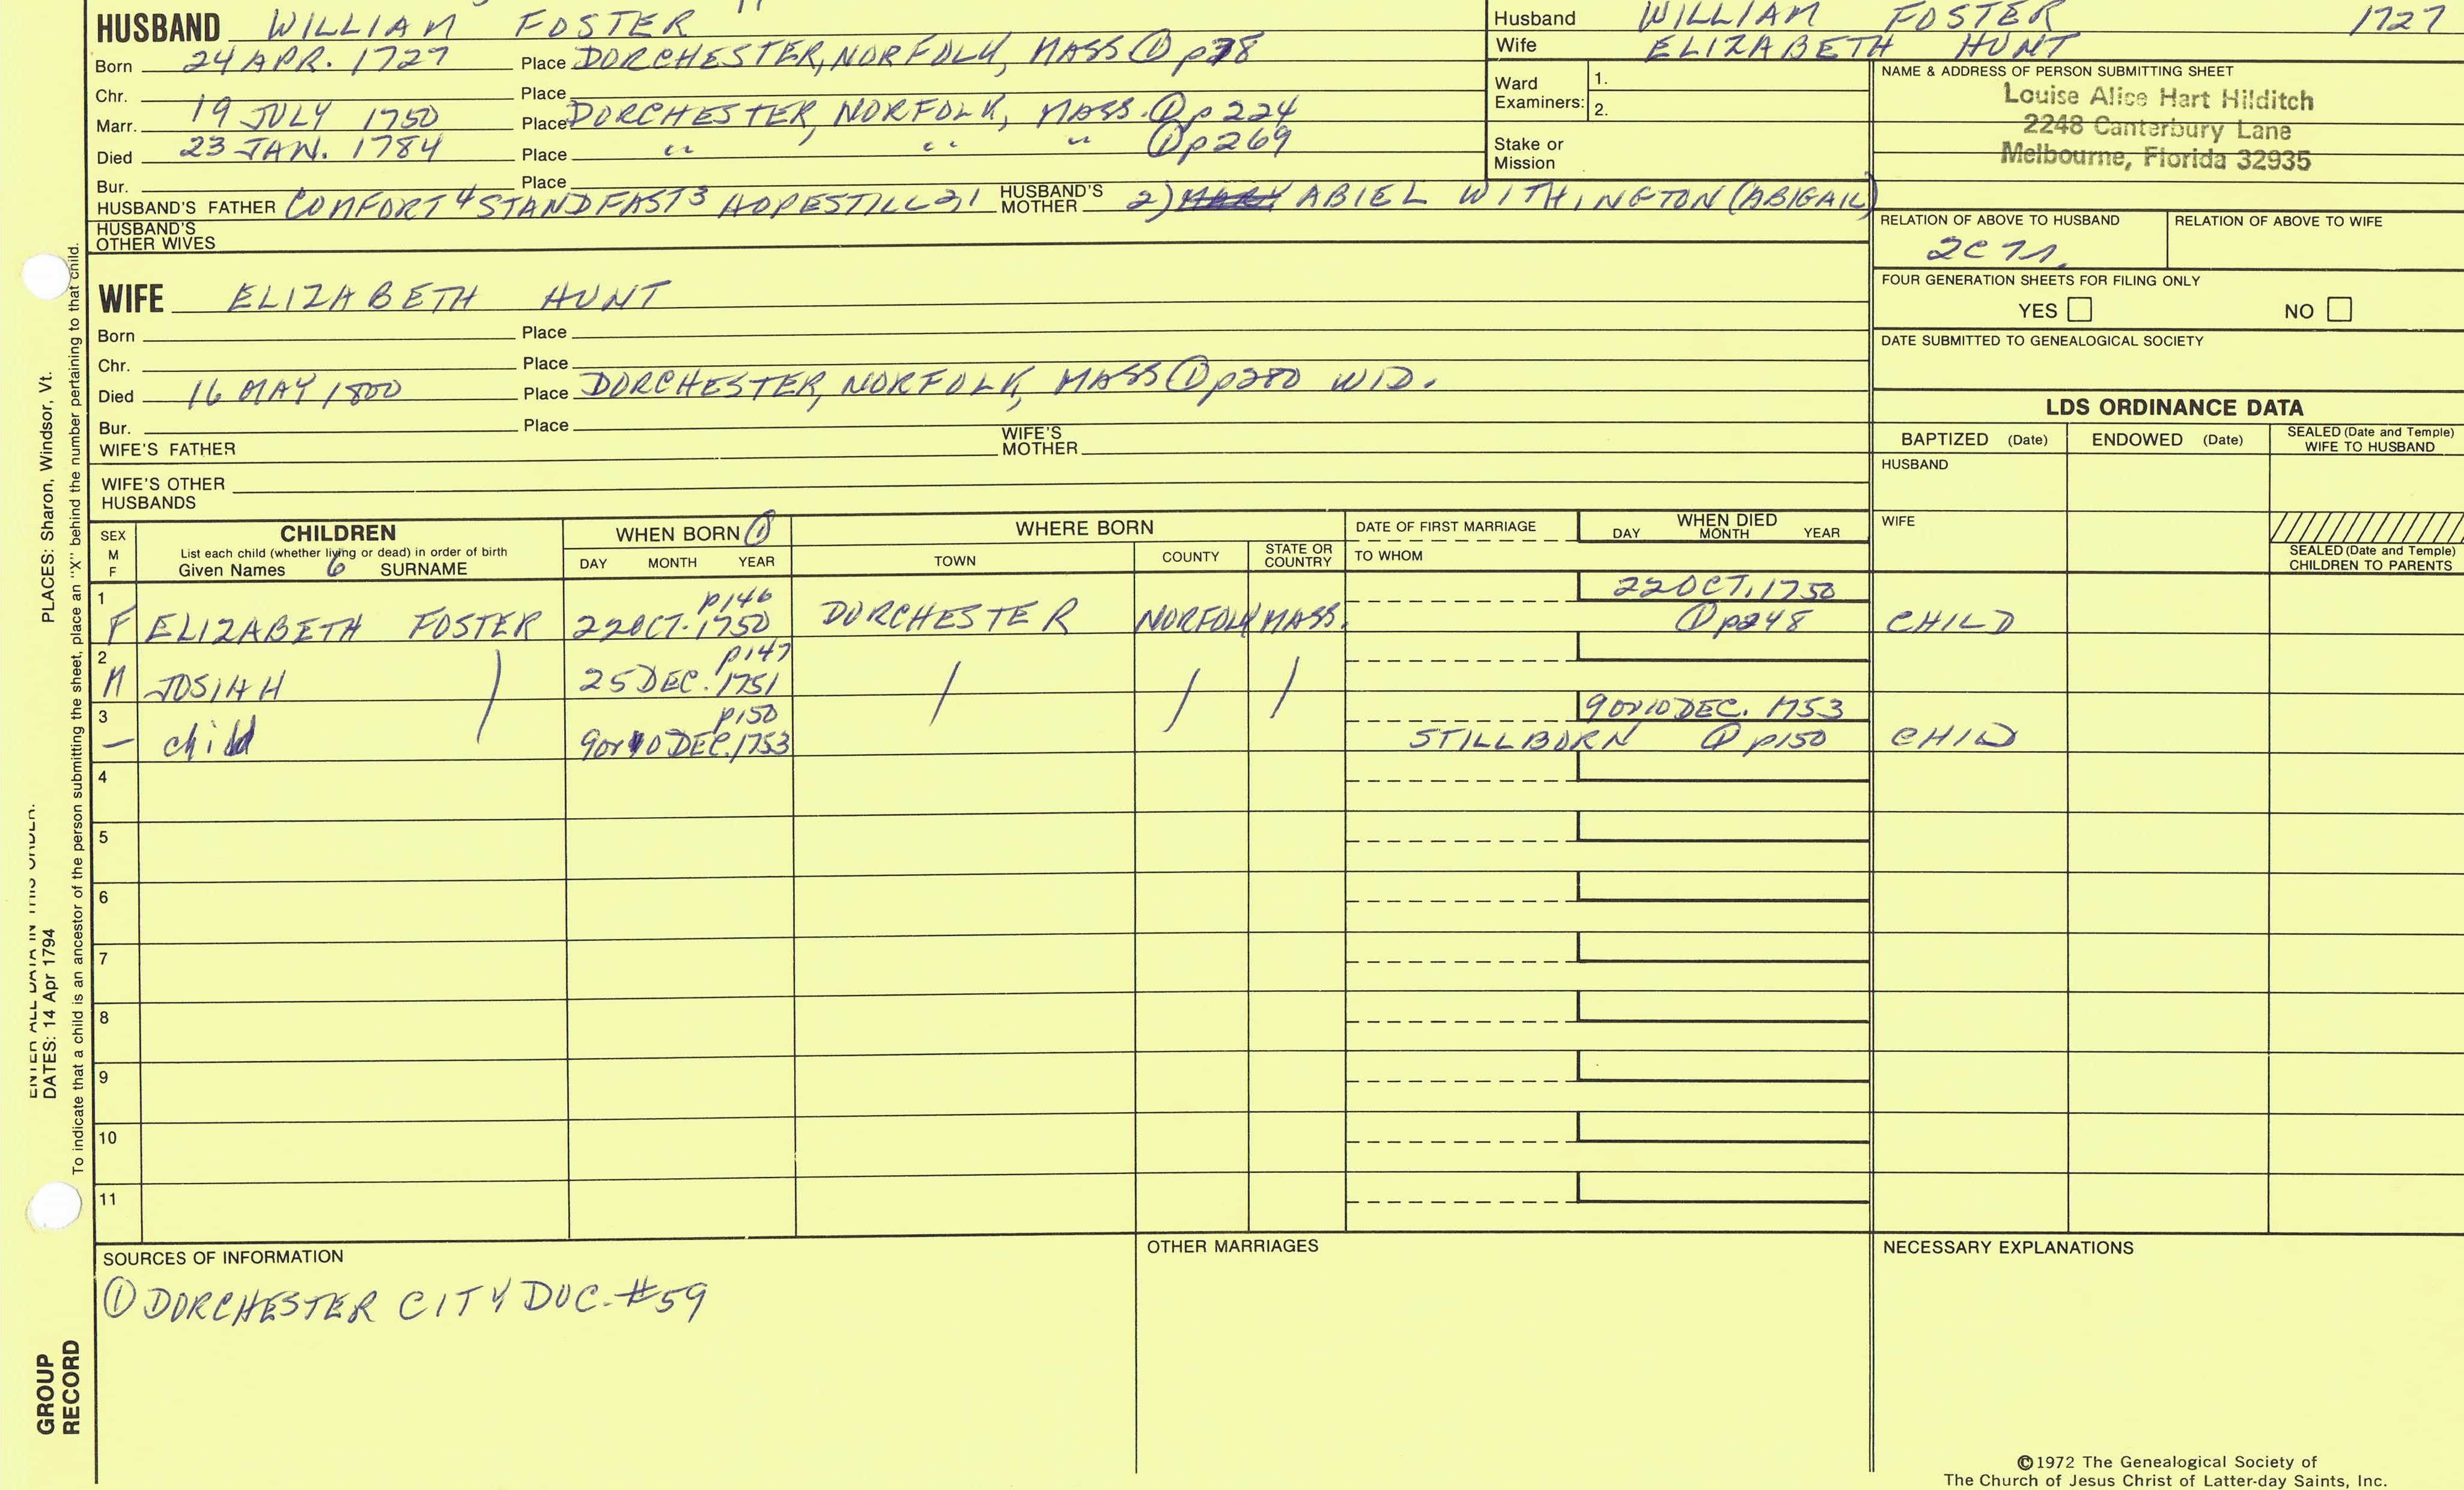 HUSBAND WILLIAM FOSTER
Born 24 APR. 1727 Place DORCHESTER, NORFOLK, MASS ① p78
Chr. Place
Marr. 19 JULY 1750 Place DORCHESTER, NORFOLK, MASS. ① p224
Died 23 JAN. 1784 Place " , " " ① p269
Bur. Place
HUSBAND'S FATHER COMFORT 4 STANDFAST 3 HOPESTILL 2,1 HUSBAND'S MOTHER 2) ABIEL WITHINGTON (ABIGAIL)
HUSBAND'S OTHER WIVES
Husband WILLIAM FOSTER 1727
Wife ELIZABETH HUNT
Ward Examiners: 1.
2.
Stake or Mission
NAME & ADDRESS OF PERSON SUBMITTING SHEET
Louise Alice Hart Hilditch
2248 Canterbury Lane
Melbourne, Florida 32935
RELATION OF ABOVE TO HUSBAND RELATION OF ABOVE TO WIFE
FOUR GENERATION SHEETS FOR FILING ONLY
YES NO
DATE SUBMITTED TO GENEALOGICAL SOCIETY
WIFE ELIZABETH HUNT
Born Place
Chr. Place
Died 16 MAY 1800 Place DORCHESTER, NORFOLK, MASS ① p280 WID.
Bur. Place
WIFE'S FATHER WIFE'S MOTHER
WIFE'S OTHER HUSBANDS
LDS ORDINANCE DATA
BAPTIZED (Date) ENDOWED (Date) SEALED (Date and Temple) WIFE TO HUSBAND
HUSBAND
WIFE
SEALED (Date and Temple) CHILDREN TO PARENTS
SEX M F
CHILDREN
List each child (whether living or dead) in order of birth
Given Names 6 SURNAME
WHEN BORN ①
DAY MONTH YEAR
WHERE BORN
TOWN COUNTY STATE OR COUNTRY
DATE OF FIRST MARRIAGE
TO WHOM
WHEN DIED
DAY MONTH YEAR
1 p146 22 OCT. 1750
F ELIZABETH FOSTER 22 OCT. 1750 DORCHESTER NORFOLK MASS. ① p248 CHILD
2 p147
M JOSIAH ) 25 DEC. 1751 / / /
3 p150 9 or 10 DEC. 1753
— child 9 or 10 DEC. 1753 STILLBORN ① p150 CHILD
4
5
6
7
8
9
10
11
SOURCES OF INFORMATION
① DORCHESTER CITY DOC. #59
OTHER MARRIAGES
NECESSARY EXPLANATIONS
©1972 The Genealogical Society of
The Church of Jesus Christ of Latter-day Saints, Inc.
PLACES: Sharon, Windsor, Vt.
To indicate that a child is an ancestor of the person submitting the sheet, place an "X" behind the number pertaining to that child.
ENTER ALL DATA IN THIS ORDER.
DATES: 14 Apr 1794
GROUP
RECORD